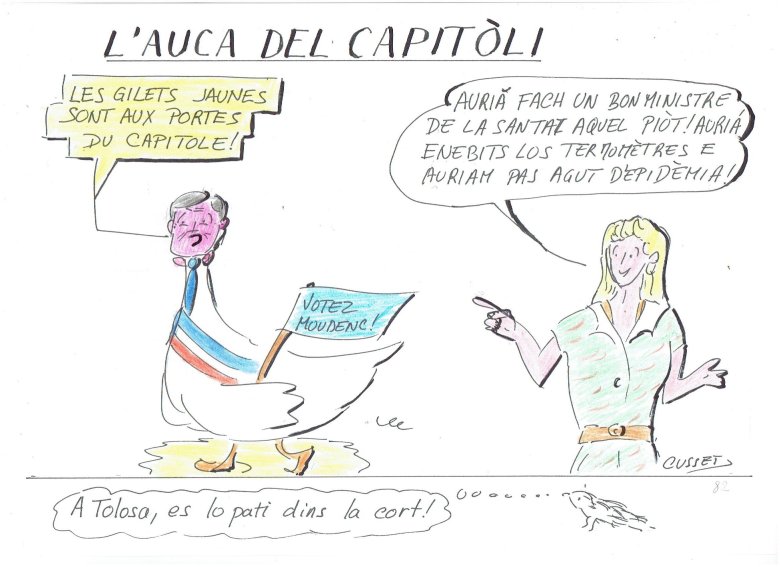 L'AUCA DEL CAPITÒLI
LES GILETS JAUNES
SONT AUX PORTES
DU CAPITOLE!
AURIÁ FACH UN BON MINISTRE
DE LA SANTAT AQUEL PIÒT! AURIÁ
ENEBITS LOS TERMOMÈTRES E
AURIAM PAS AGUT D'EPIDÈMIA!
VOTEZ
MOUDENC!
CUSSET
82
A Tolosa, es lo pati dins la cort!